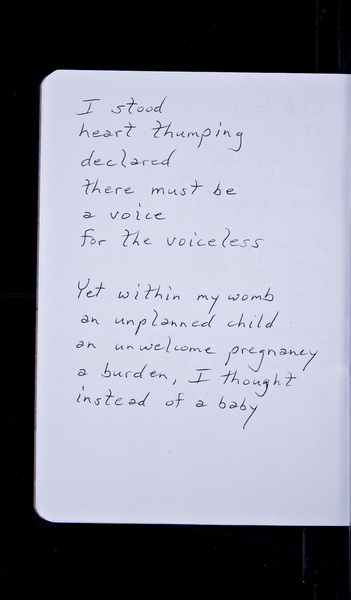 I stood
heart thumping
declared
there must be
a voice
for the voiceless

Yet within my womb
an unplanned child
an unwelcome pregnancy
a burden, I thought
instead of a baby